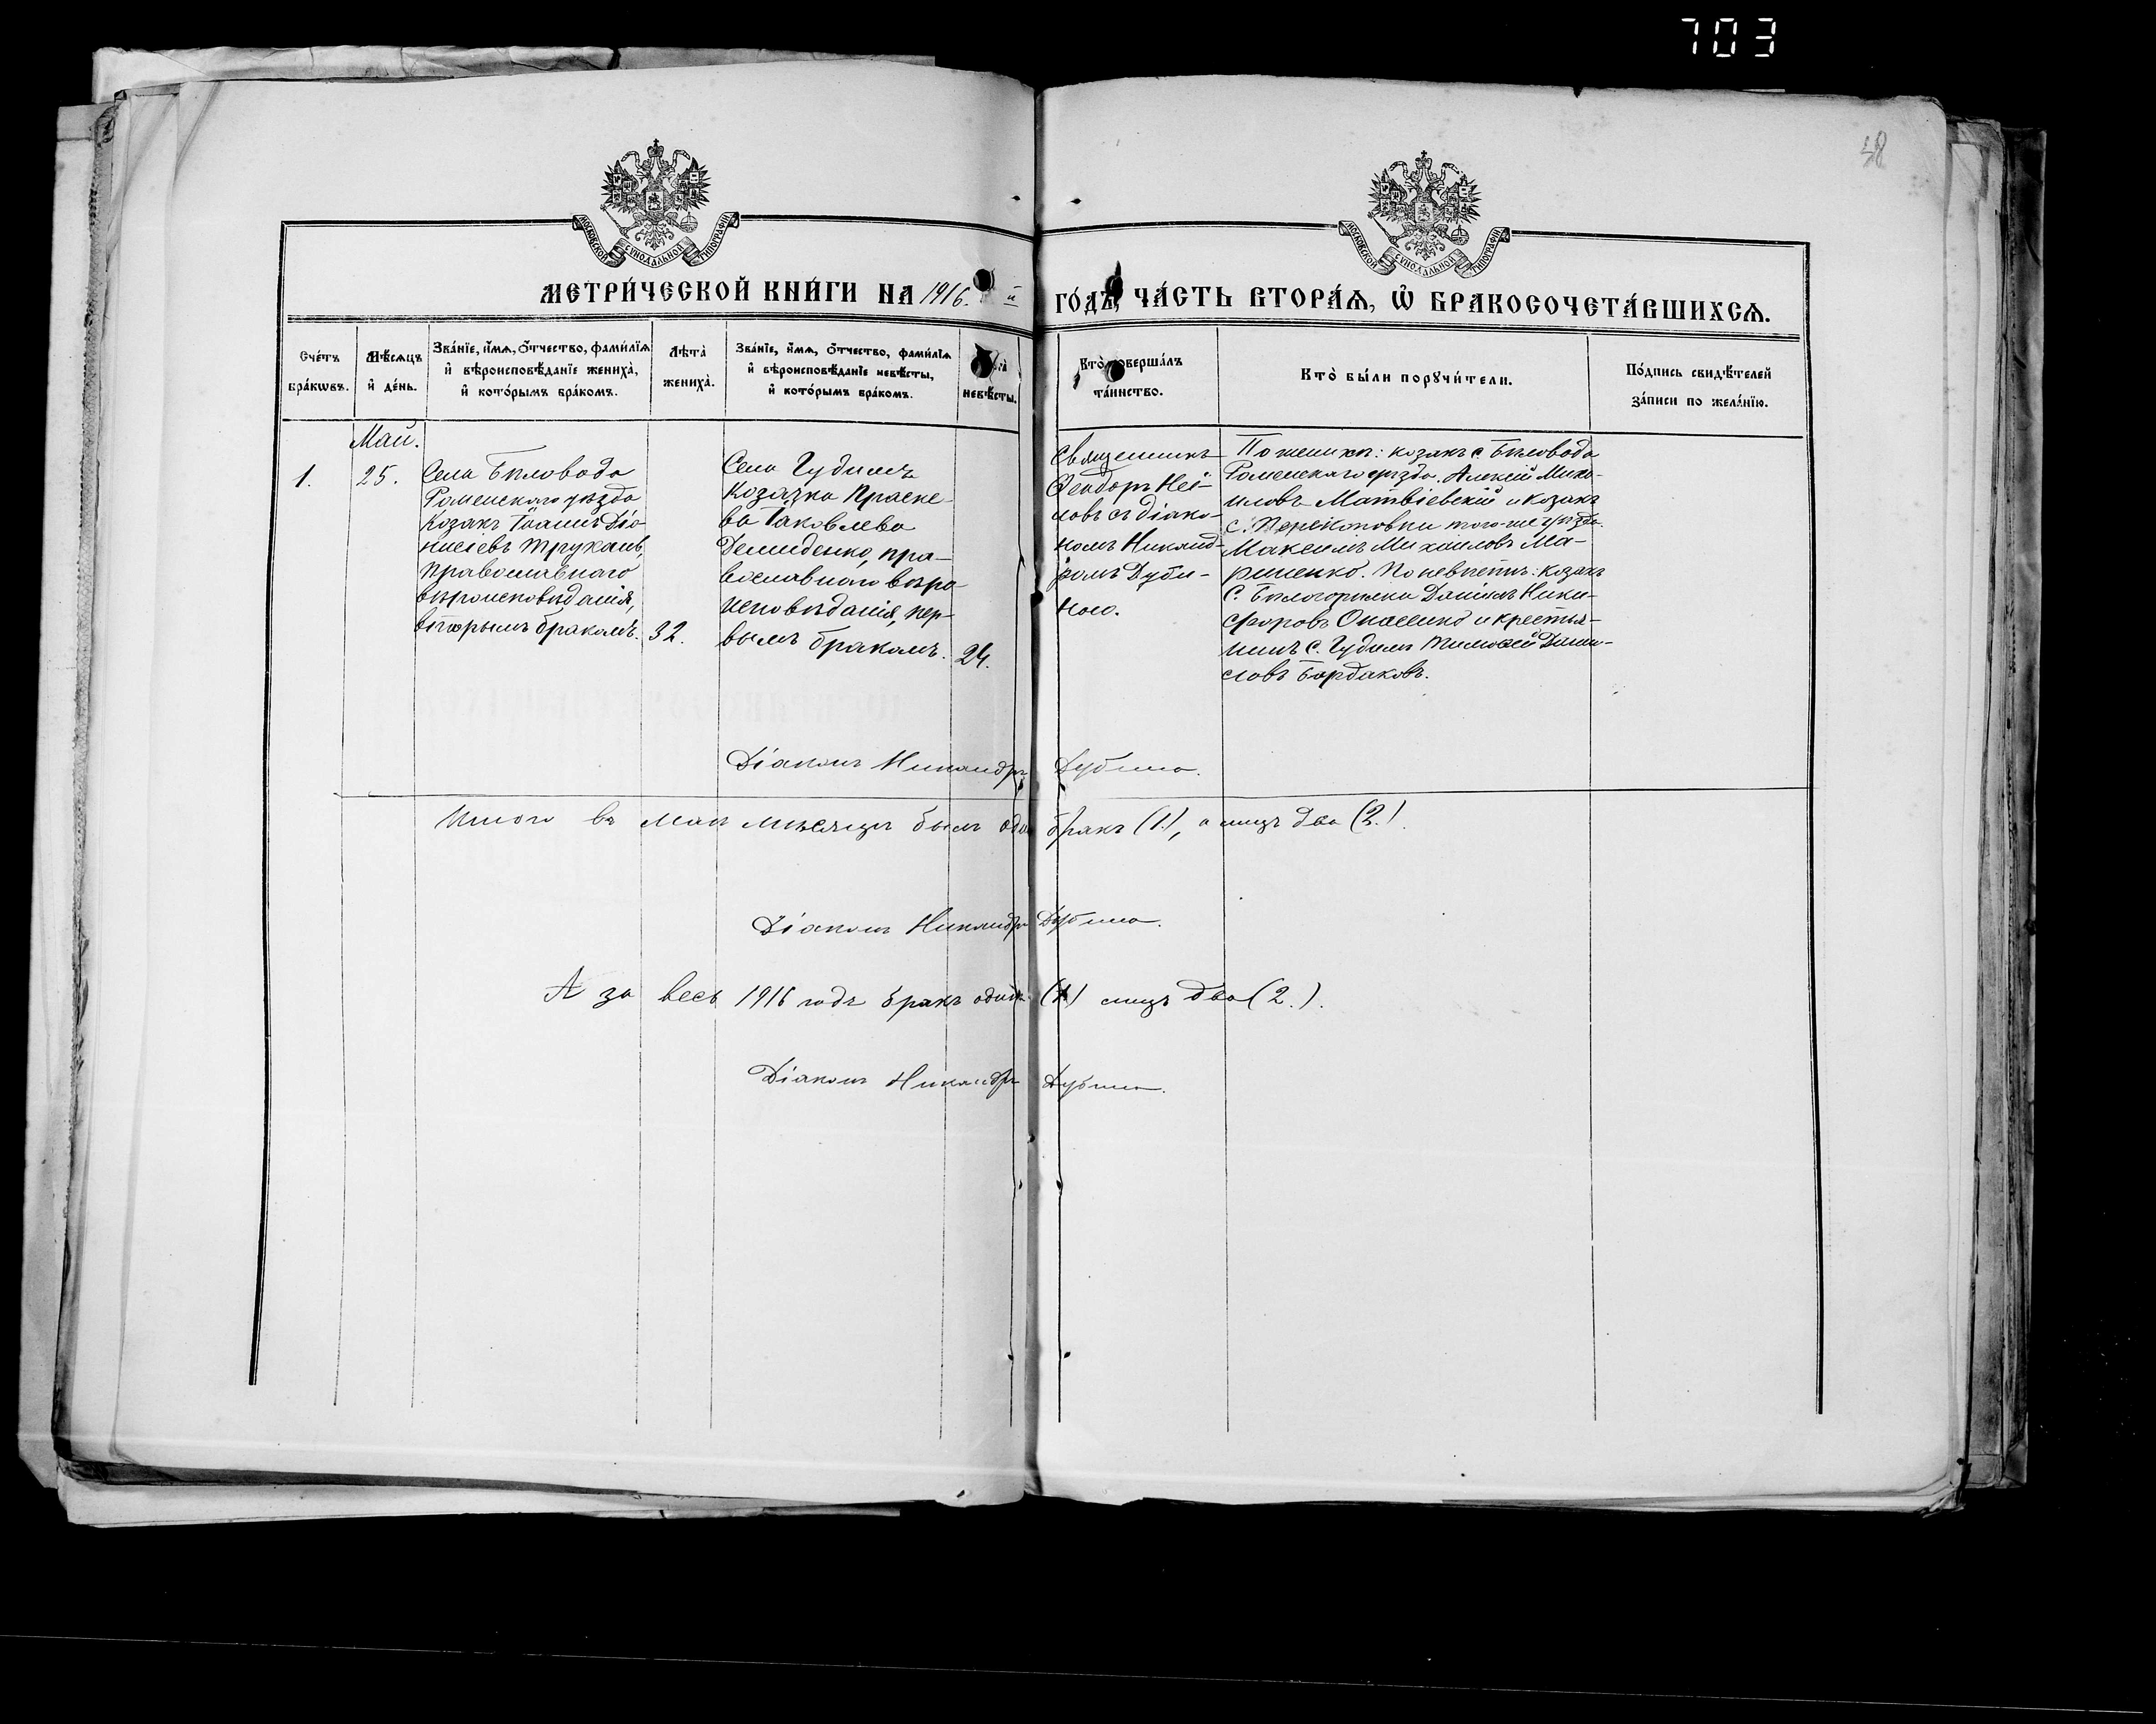 703
48
МОСКОВСКОЙ СУНОДАЛЬНОЙ ТИПОГРАФІИ
МОСКОВСКОЙ СУНОДАЛЬНОЙ ТИПОГРАФІИ
МЕТРИ́ЧЕСКОЙ КНИ́ГИ НА 1916. й ГО́ДЪ, ЧА́СТЬ ВТОРА́Ѧ, Ѽ БРАКОСОЧЕТА́ВШИХСѦ.
Сче́тъ
бра́кѡвъ.
Мѣ́сѧцъ
и҆ де́нь.
Зва́нїе, и҆́мѧ, ѻ҆́тчество, фами́лїѧ
и҆ вѣроисповѣ́данїе жениха̀,
и҆ кото́рымъ бра́комъ.
Лѣ́та
жениха̀.
Зва́нїе, и҆́мѧ, ѻ҆́тчество, фами́лїѧ
и҆ вѣроисповѣ́данїе невѣ́сты,
и҆ кото́рымъ бра́комъ.
невѣ́сты.
Кто̀ соверша́лъ
та́инство.
Кто̀ бы́ли порꙋчи́тели.
По́дпись свидѣ́телей
за́писи по жела́нїю.
Май.
1.
25.
Села Бѣловода
Роменскаго уѣзда
козакъ Іоаннъ Діо-
нисіевъ Труханъ,
православнаго
вѣроисповѣданія,
вторымъ бракомъ.
32.
Села Гудимъ
козачка Праске-
ва Іаковлева
Демиденко, пра-
вославнаго вѣро
исповѣданія, пер-
вымъ бракомъ.
24.
Священникъ
Ѳеодоръ
съ діако-
номъ Никанд-
ромъ Дуби-
ною.
По женихѣ: козакъ с Бѣловода
Роменскаго уѣзда. Алексій Миха-
иловъ Матвіевскій и козакъ
с. Перекоповки того-же уѣзда
Максимъ Михаиловъ Ма-
рченко. По невѣстѣ: козакъ
С. Бѣлогорилки Даніилъ Ники-
форовъ и крестья-
нинъ с. Гудимъ Тимоѳей
Бардаковъ.
Діаконъ Никандръ Дубина.
Итого въ маѣ мѣсяцѣ былъ одинъ бракъ (1.), а лицъ два (2.).
Діаконъ Никандръ Дубина.
А за весь 1916 годъ бракъ одинъ (1) лицъ два (2.).
Діаконъ Никандръ Дубина.